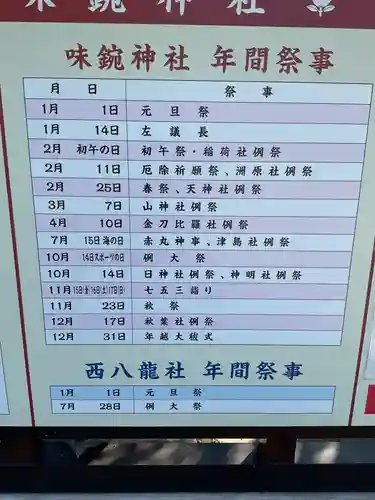 味鋺神社
味鋺神社 年間祭事
月 日 祭 事
1月 1日 元旦祭
1月 14日 左議長
2月 初午の日 初午祭・稲荷社例祭
2月 11日 厄除祈願祭、洲原社例祭
2月 25日 春祭、天神社例祭
3月 7日 山神社例祭
4月 10日 金刀比羅社例祭
7月 15日 海の日 赤丸神事、津島社例祭
10月 14日スポーツの日 例大祭
10月 14日 日神社例祭、神明社例祭
11月 15日(金)16日(土)17日(日) 七五三詣り
11月 23日 秋祭
12月 17日 秋葉社例祭
12月 31日 年越大祓式
西八龍社 年間祭事
1月 1日 元旦祭
7月 28日 例大祭